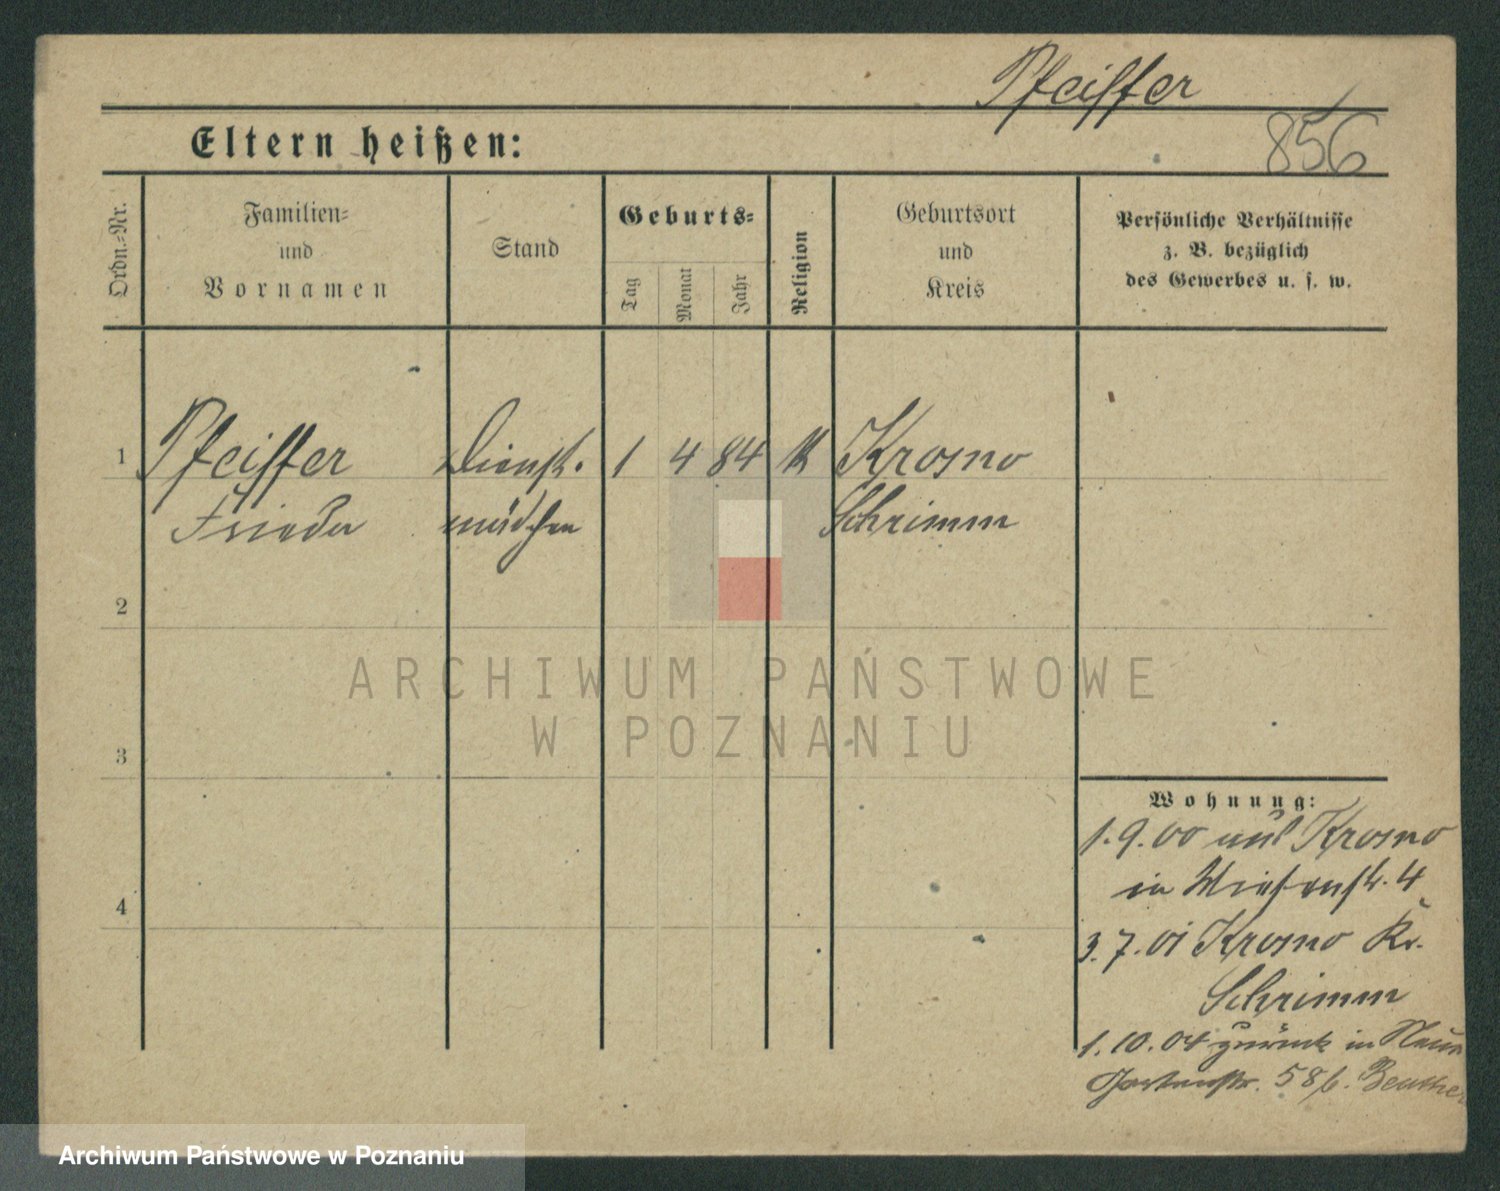 Pfeiffer
856
Eltern heißen:
Ordn.-Nr.
Familien-
und
Vornamen
Stand
Geburts-
Tag
Monat
Jahr
Religion
Geburtsort
und
Kreis
Persönliche Verhältnisse
z. B. bezüglich
des Gewerbes u. s. w.
1 Pfeiffer Dienst- 1 4 84 K Krosno
Frieda mädchen Schrimm
2
3
4
ARCHIWUM PAŃSTWOWE
W POZNANIU
Wohnung:
1.9.00 aus Krosno
in Wiesenstr. 4
3.7.01 Krosno Kr.
Schrimm
1.10.04 zurück in
Gartenstr. 58 b.
Archiwum Państwowe w Poznaniu